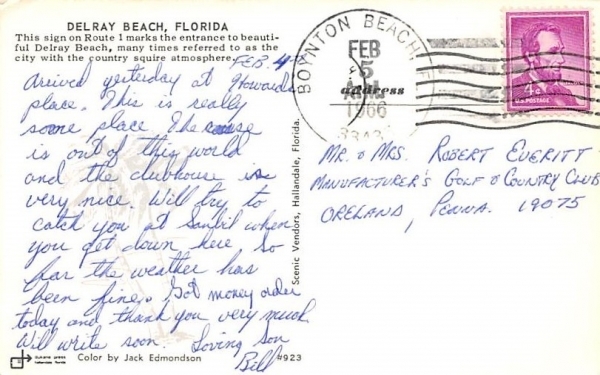 DELRAY BEACH, FLORIDA
This sign on Route 1 marks the entrance to beauti-
ful Delray Beach, many times referred to as the
city with the country squire atmosphere.
FEB 4
Arrived yesterday at Howards
place. This is really
some place. The
is out of this world
and the clubhouse is
very nice. Will try to
catch you at Sanibil when
you get down here. So
far the weather has
been fine. Got money order
today and thank you very much.
Will write soon. Loving son
Bill
Color by Jack Edmondson
#923
Scenic Vendors, Hallandale, Florida.
BOYNTON BEACH
FEB
5
1966
address
4¢
U.S. POSTAGE
MR. & MRS. ROBERT EVERITT
MANUFACTURER'S GOLF & COUNTRY CLUB
ORELAND, PENNA. 19075